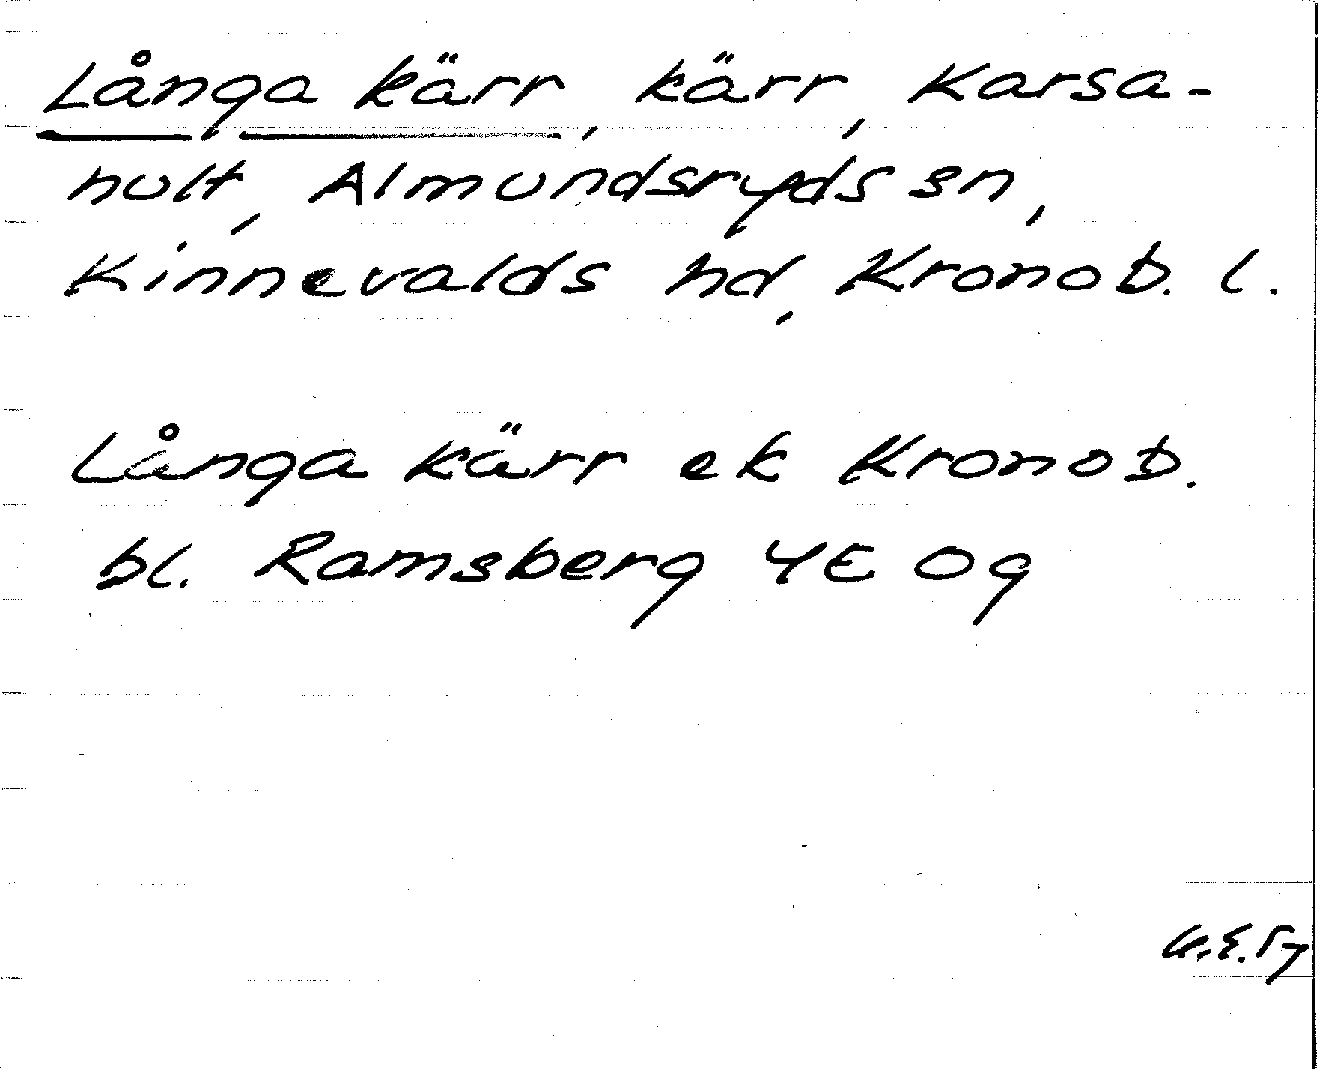 Långa kärr, kärr, Karsa-
hult, Almundsryds sn,
Kinnevalds hd, Kronob. l.
Långa kärr ek Kronob.
bl. Ramsberg 4E Og